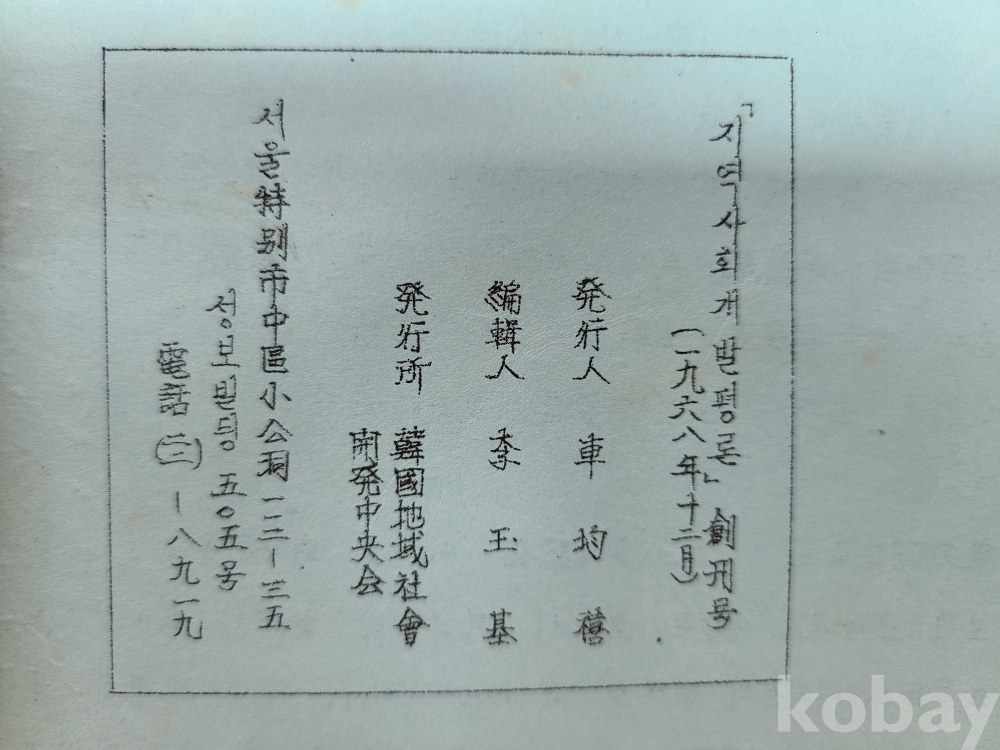 「지역사회개발평론」 創刊号
(一九六八年十二月)
発行人 車均禧
編輯人 李玉基
発行所 韓國地域社會
開発中央会
서울特別市中區小公洞一一二-三五
성보빌딍 五〇五号
電話(二三)-八九一九
kobay